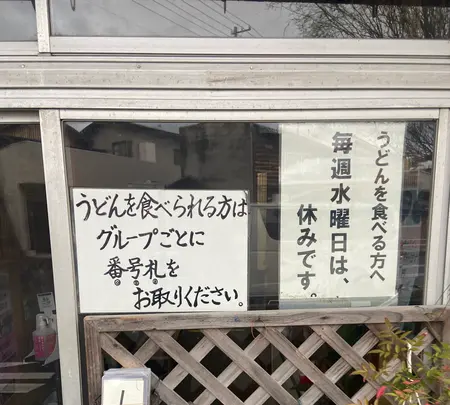 うどんを食べられる方は
グループごとに
番号札を
お取りください。
うどんを食べる方へ
毎週水曜日は、
休みです。